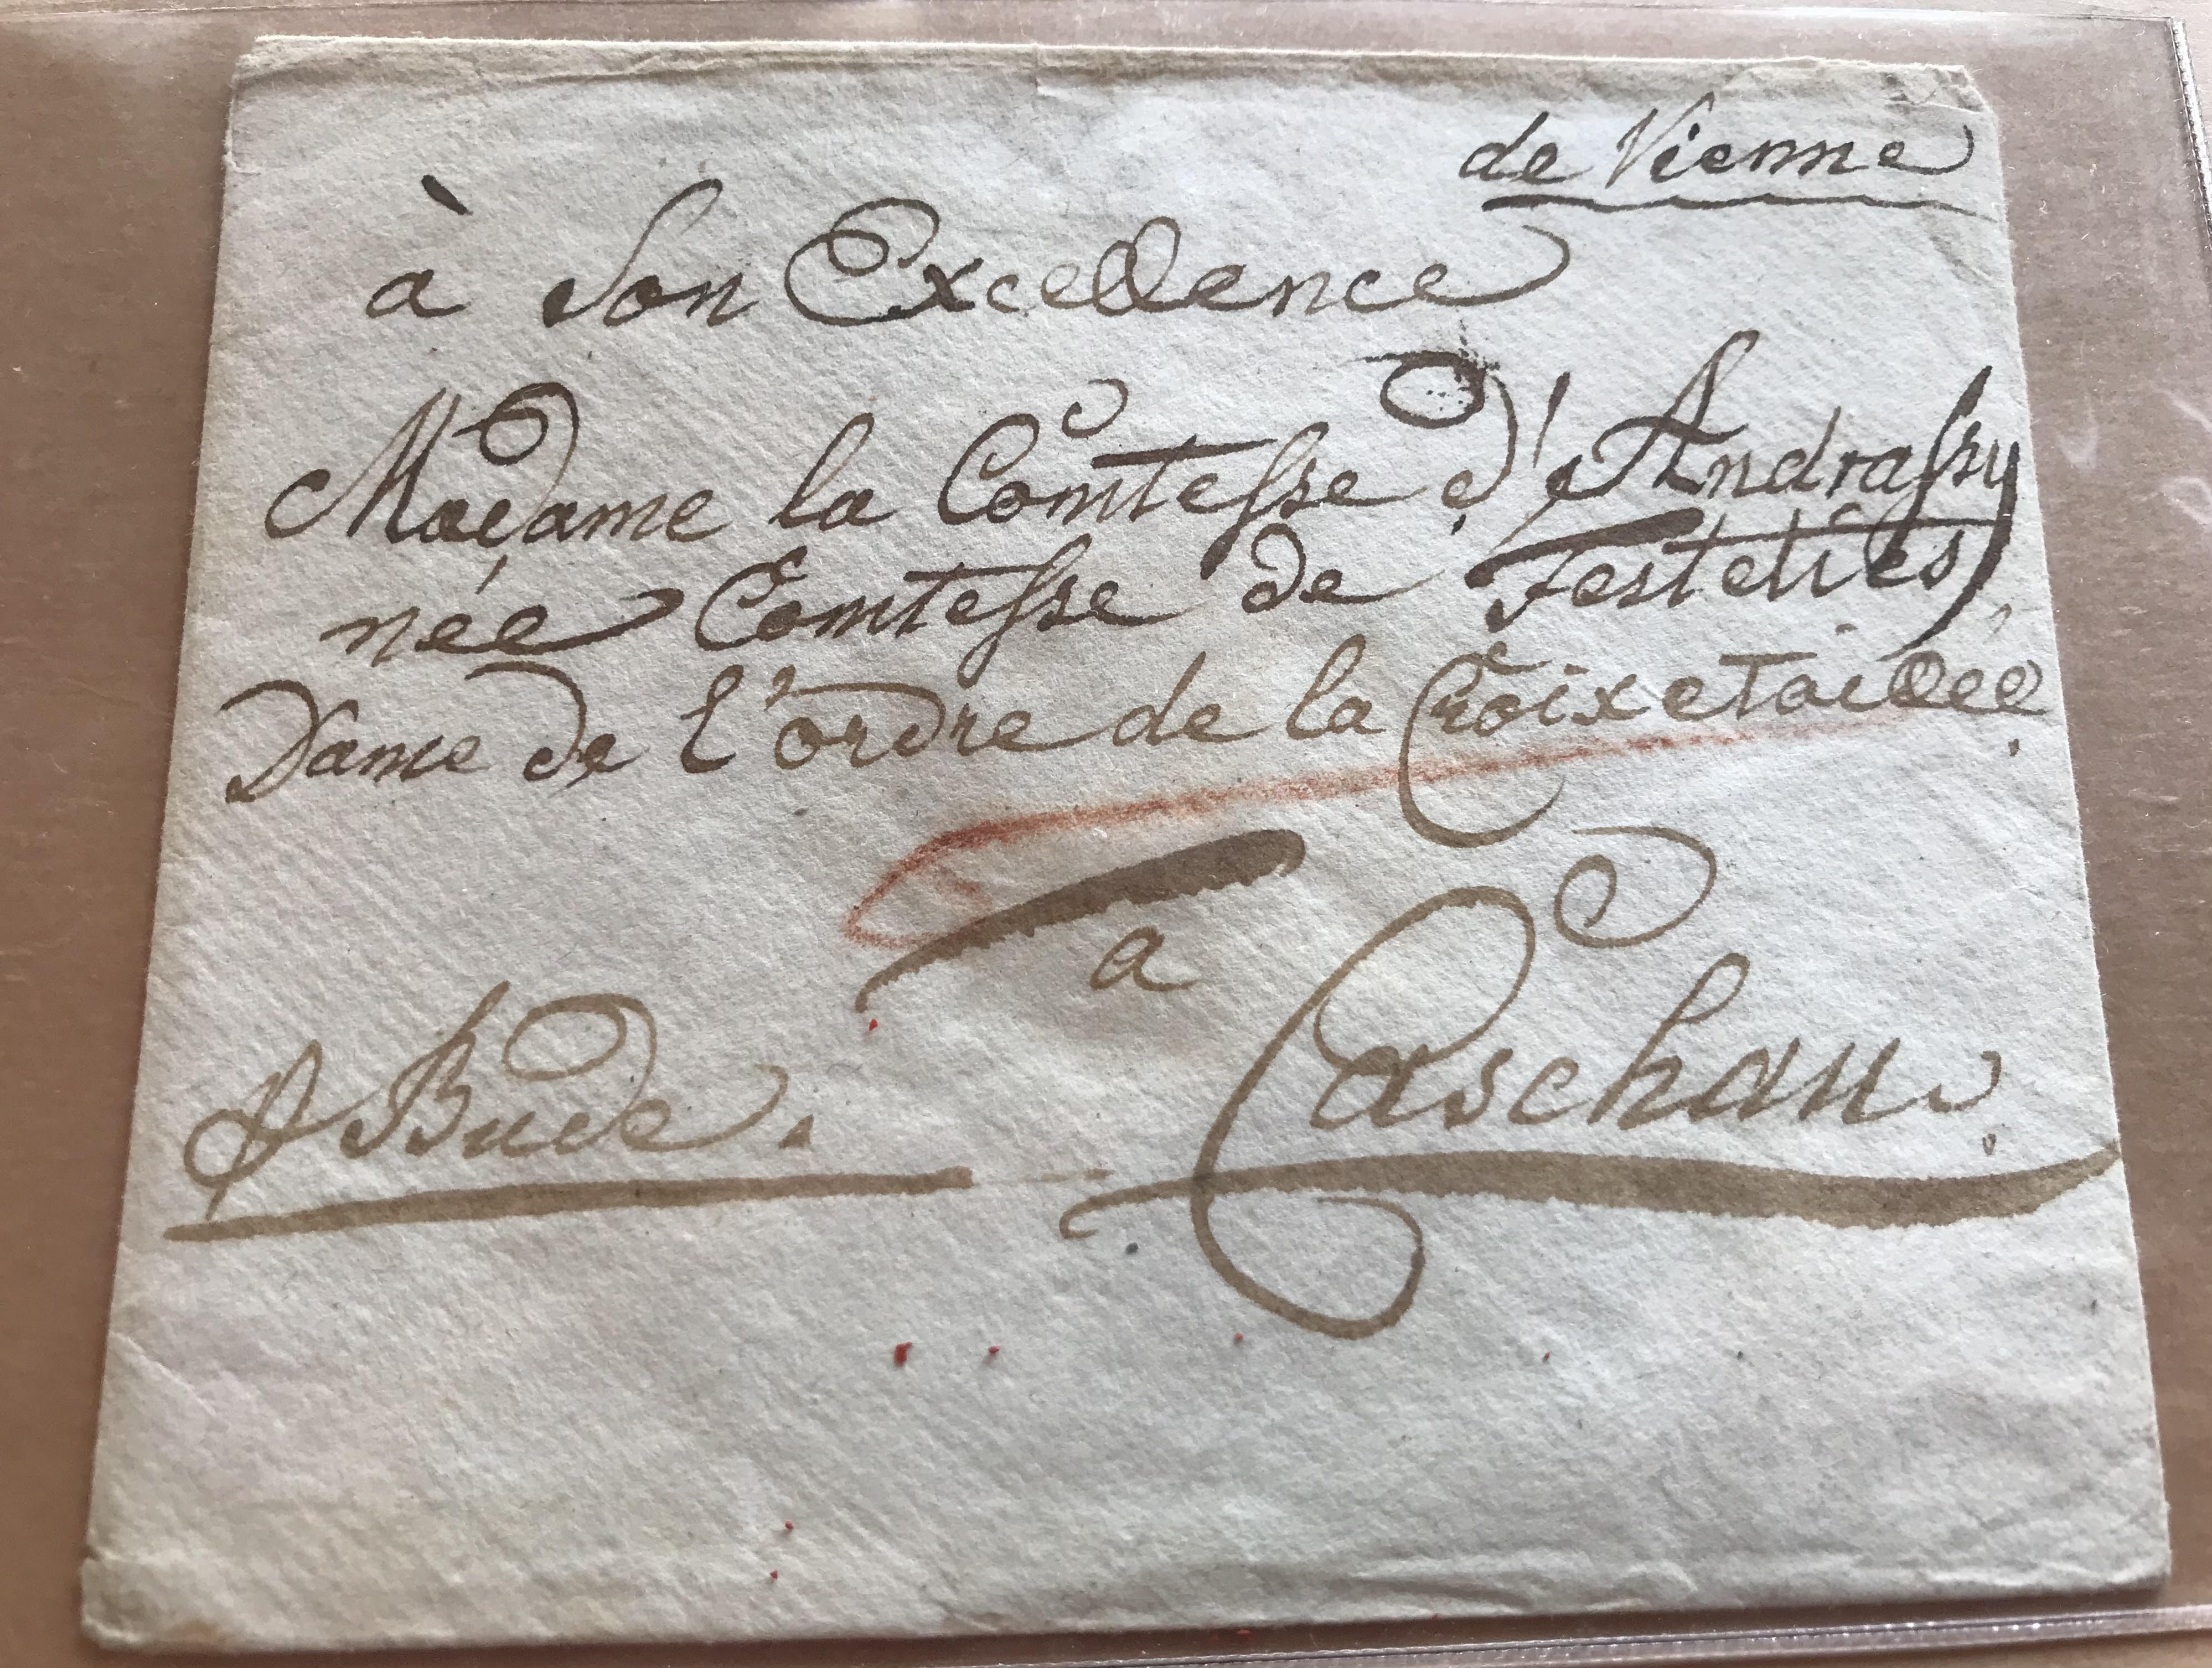 de Vienne
à Son Excellence
Madame la Comtesse d'Andrassy
née Comtesse de Festetics
Dame de l'ordre de la Croix etoillée.
a
Caschau.
p Bude.